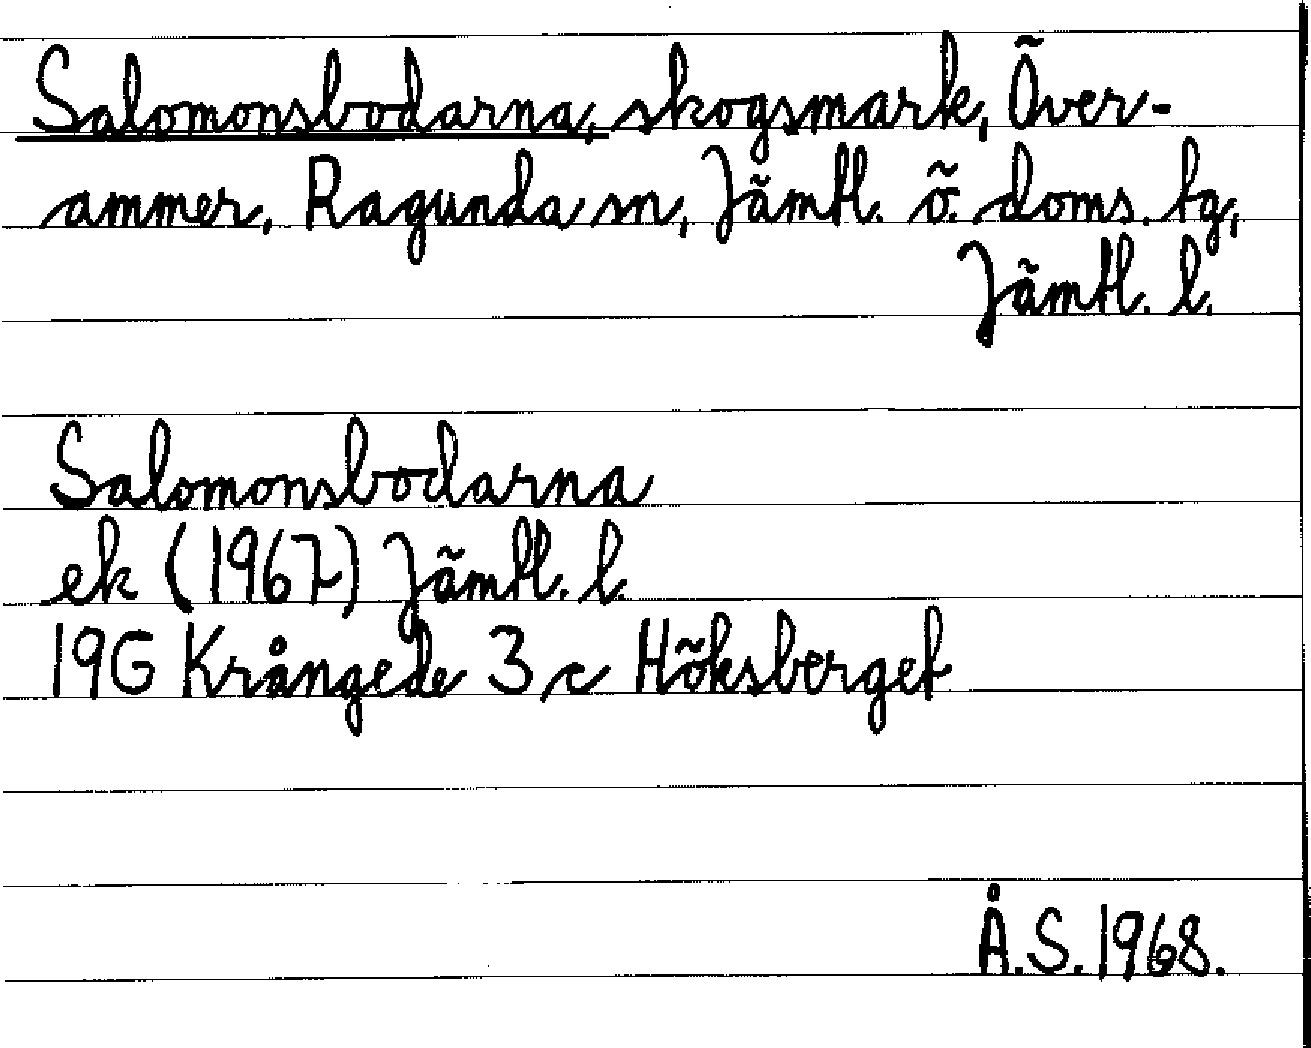 Salomonsbodarna, skogsmark, Över-
ammer, Ragunda sn, Jämtl. ö. doms. tg,
Jämtl. l.
Salomonsbodarna
ek (1967) Jämtl. l.
19G Krångede 3 c Höksberget
Å.S. 1968.